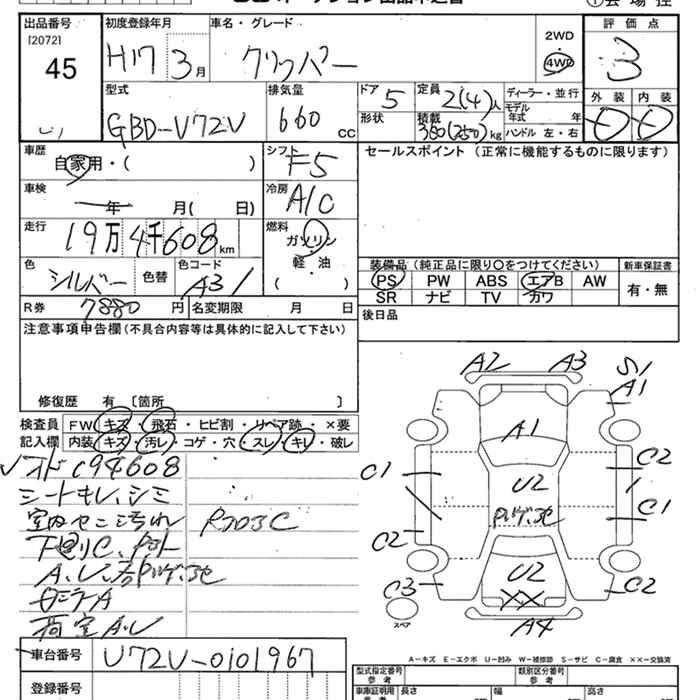 出品番号
[2072]
45
初度登録年月
H17 3月
車名・グレード
クリッパー
2WD
4WD
評価点
3
型式
GBD-V72V
排気量
660 CC
ドア
5
形状
定員
2(4)人
積載
350(250)kg
ディーラー・並行
モデル年式 年
ハンドル 左・右
外装
内装
車歴
自家用・( )
シフト
F5
セールスポイント (正常に機能するものに限ります)
車検
年 月( 日)
冷房
A/C
走行
19万4千608km
燃料
ガソリン
軽・油
( )
色
シルバー
色替
色コード
A31
装備品 (純正品に限り○をつけてください)
新車保証書
PS PW ABS エアB AW
SR ナビ TV カワ
有・無
R券 7880円
名変期限 月 日
後日品
注意事項申告欄 (不具合内容等は具体的に記入して下さい)
修復歴 有 〔箇所 〕
検査員記入欄
FW キズ・飛石・ヒビ割・リペア跡・×要
内装 キズ・汚レ・コゲ・穴・スレ・キレ・破レ
シートキレ、シミ
下廻りC
荷室A.U
A2 A3 S1
A1
A1
C1 C2
U2
C1
C2
U2
C3 C2
スペア
A4
車台番号
U72V-0101967
登録番号
A-キズ E-エクボ U-凹み W-補修跡 S-サビ C-腐食 ××-交換済
型式指定番号
参考
類別区分番号
参考
車庫証明用
参考
長さ
幅
高さ